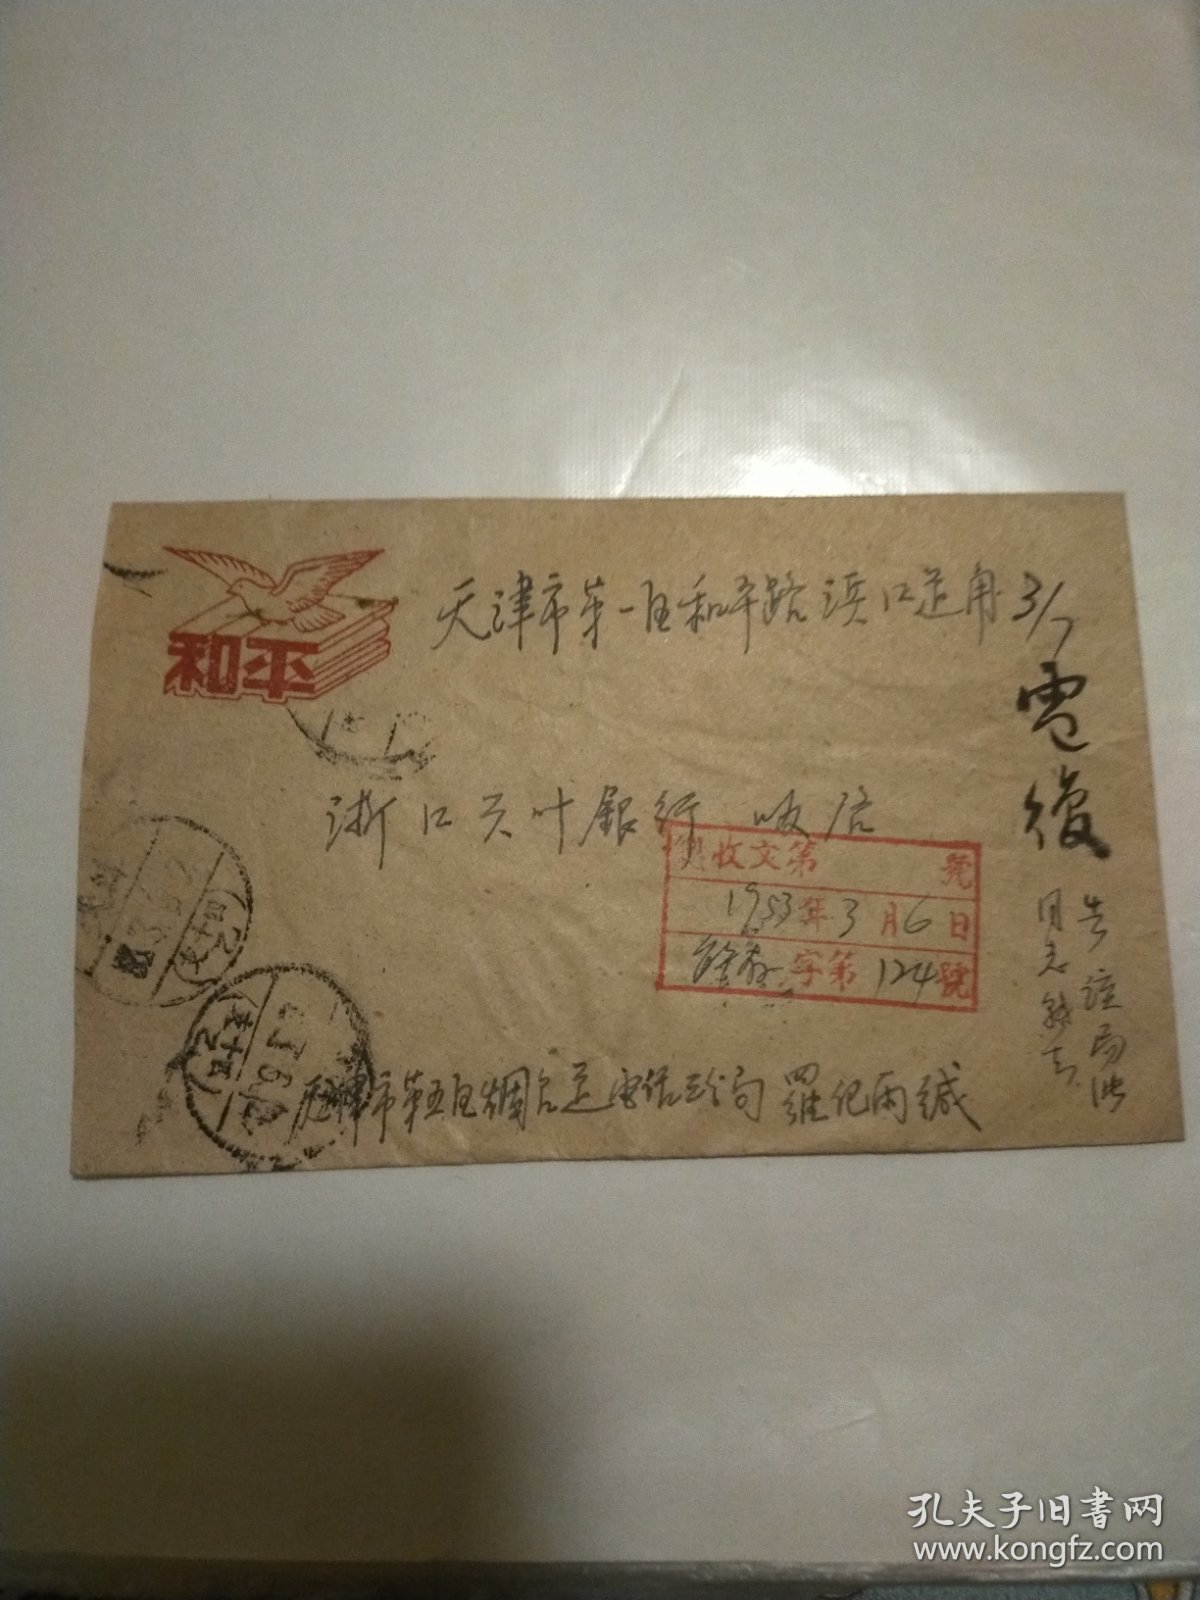 和平
天津市第一区和平路滨江道角
3/7
浙江兴业銀行 收启
電複
收文第 號
1953年3月6日
字第124號
天津市第五区烟台道电话三分局 羅纪雨缄
孔夫子旧书网
www.kongfz.com